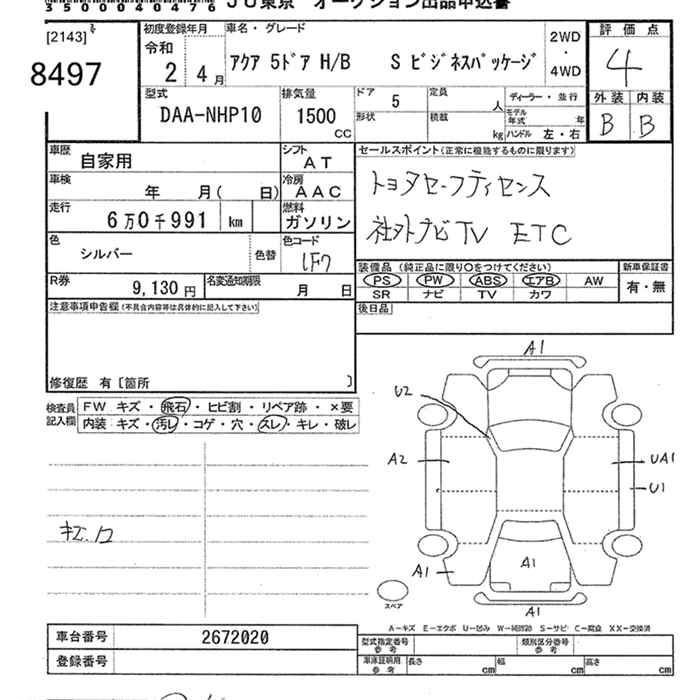 350000040476 JU東京 オークション出品申込書
[2143]
8497
初度登録年月
令和
2 年 4 月
車名・グレード
アクア 5ドア H/B S ビジネスパッケージ
2WD
・
4WD
評価点
4
外装 内装
B B
型式
DAA-NHP10
排気量
1500
CC
ドア 5
定員 人
ディーラー・並行
形状
積載 kg
モデル年式 年
ハンドル 左・右
車歴
自家用
シフト
AT
車検
年 月( 日)
冷房
AAC
走行
6万0千991 km
燃料
ガソリン
色
シルバー
色替
色コード
1F7
R券
9,130 円
名変通知期限
月 日
セールスポイント(正常に機能するものに限ります)
トヨタセーフティセンス
社外ナビTV ETC
装備品(純正品に限り○をつけてください)
PS PW ABS エアB AW
SR ナビ TV カワ
新車保証書
有・無
後日品
注意事項申告欄(不具合内容等は具体的に記入して下さい)
修復歴 有〔箇所 〕
検査員記入欄
FW キズ・飛石・ヒビ割・リペア跡・×要
内装 キズ・汚レ・コゲ・穴・スレ・キレ・破レ
A1
U2
A2
UA1
U1
A1
A1
A1
スペア
A-キズ E-エクボ U-凹み W-補修跡 S-サビ C-腐食 XX-交換済
車台番号
2672020
登録番号
型式指定番号 参考
類別区分番号 参考
車庫証明用 参考
長さ cm
幅 cm
高さ cm